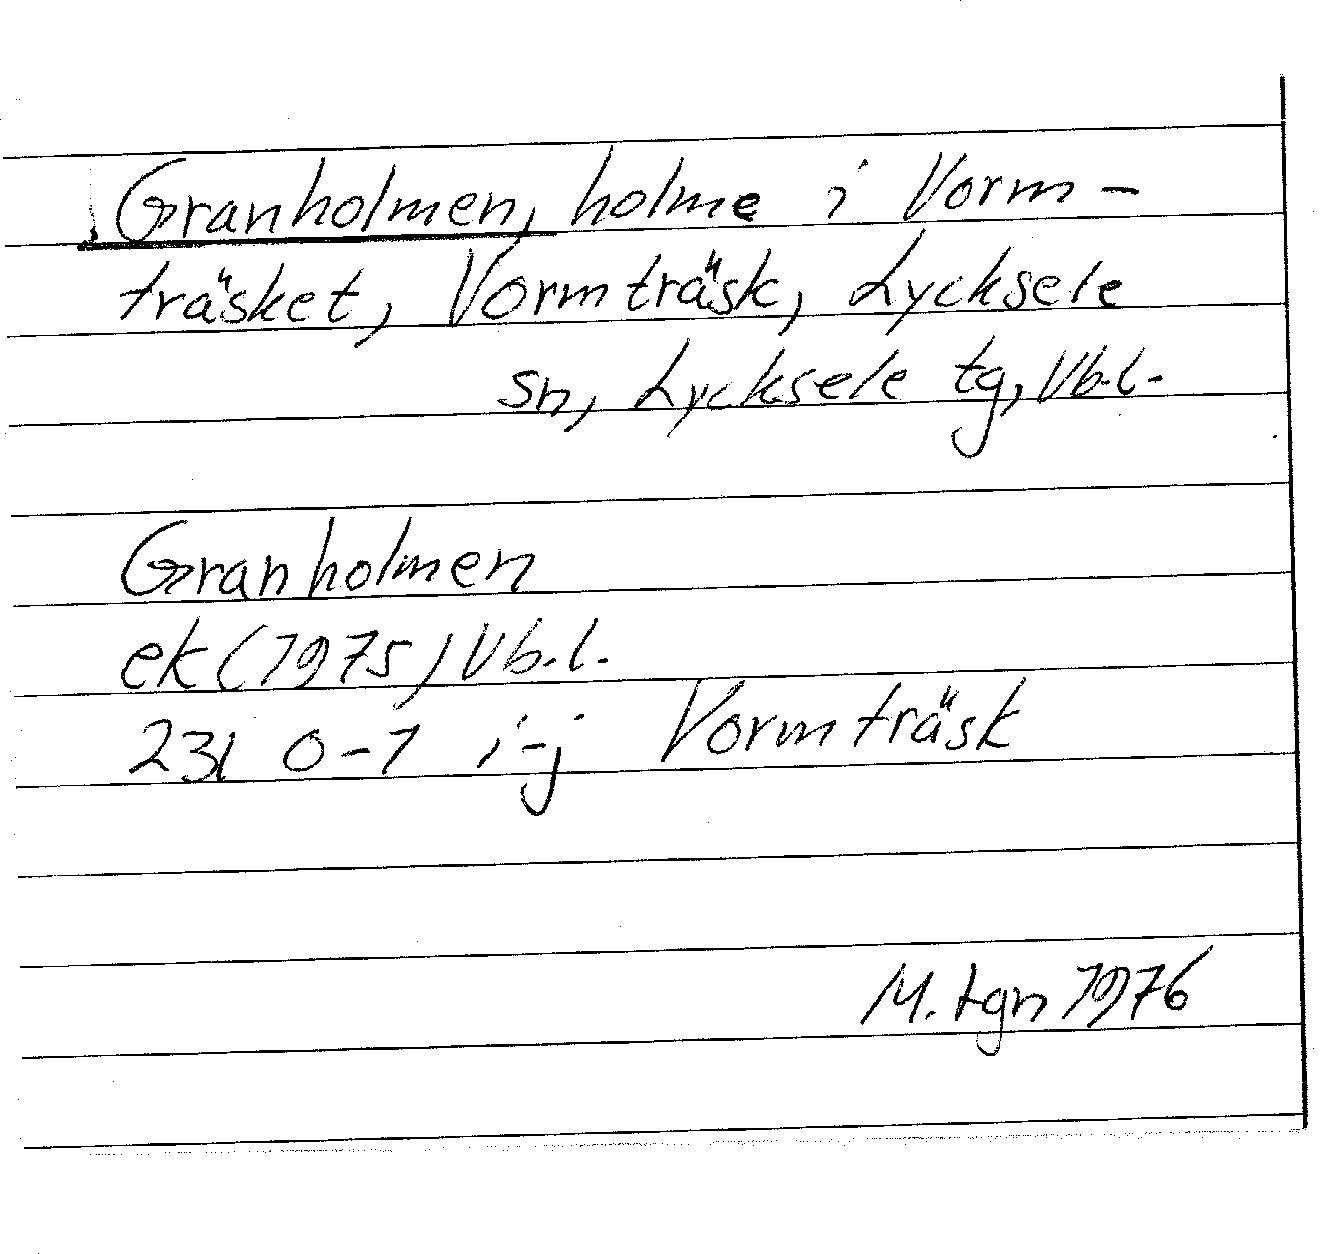 Granholmen, holme i Vorm-
träsket, Vormträsk, Lycksele
sn, Lycksele tg, Vb.l.
Granholmen
ek (1975) Vb.l.
23I 0-1 i-j Vormträsk
M. tgn 1976